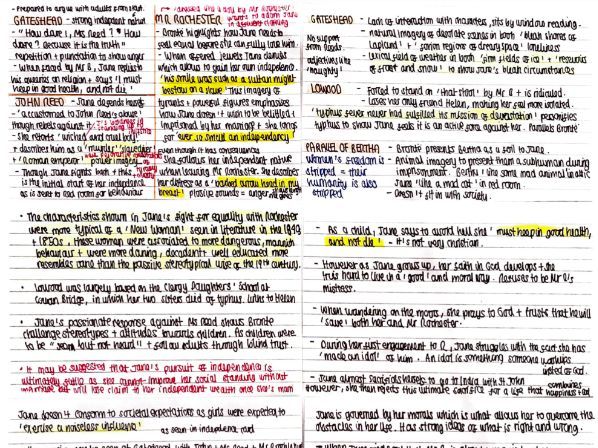 - Prepared to argue with adults from start.
GATESHEAD - strong independent nature
- "How dare I, Mrs Reed? How
dare? Because it is the truth"
repetition + punctuation to show anger
- When faced by Mr B, Jane replies to
his queries on religion + says 'I must
keep in good health, and not die'
JOHN REED - Jane defends herself
'accustomed to John Reed's abuse'
though rebels against
- She retorts 'wicked and cruel boy'
- describes him as a 'murderer'
a 'roman emperor'
- Though Jane fights back + this
is the initial start of her independence
as is sent to red room for behaviour
MR ROCHESTER
- Bronte highlights how Jane needs to
feel equal before she can fully love him
- When offered jewels Jane denies
which allows to gain her own independence
'his smile was such as a sultan might
bestow on a slave' This imagery of
tyrants + powerful figures emphasises
how Jane doesn't wish to be belittled +
imprisoned by her marriage + she longs
for 'ever so small an independency'
Even though it has consequences
She follows her independent nature
when leaving Mr Rochester. She describes
her distress as a 'barbed arrow head in my
breast' plosive sounds = anger
GATESHEAD - Lack of interaction with characters, sits by window reading.
No support
from Reeds
adjectives like
'naughty'
- natural imagery of desolate scenes in book 'bleak shores of
Lapland' + 'forlorn regions of dreary space' loneliness
- lexical field of weather in book 'firm fields of ice' + 'reservoirs
of frost and snow' to show Jane's bleak circumstances
LOWOOD - Forced to stand on 'that stool' by Mr B + is ridiculed
- Loses her only friend Helen, making her feel more isolated.
'typhus fever had fulfilled its mission of devastation' personifies
typhus to show Jane feels it is an active force against her. Parallels Bronte
PARALLEL OF BERTHA - Bronte presents Bertha as a foil to Jane.
women's freedom is
stripped = their
humanity is also
stripped
- Animal imagery to present them as subhuman during
imprisonment. Bertha 'like some mad animal' in attic
Jane 'like a mad cat' in red room.
- Doesn't fit in with society.
• The characteristics shown in Jane's fight for equality with Rochester
were more typical of a 'New Woman' seen in literature in the
+ 1850s, these women were associated to more dangerous, mannish
behaviour + were more daring, decadent + well educated more
resembles than the passive stereotypical wife of the 19th century.
• Lowood was largely based on the Clergy Daughters' School at
Cowan Bridge, in which her two sisters died of typhus. Links to Helen
• Jane's passionate response against Mrs Reed shows Bronte
challenge stereotypes + attitudes towards children. As children were
to be "seen but not heard" + follow adults through blind trust.
• It may be suggested that Jane's pursuit of independence is
ultimately futile as she cannot improve her social standing without
inheritance but will lose claim to her independent wealth once she's married
Jane doesn't conform to societal expectations as girls were expected to
'exercise a noiseless influence'
- As a child, Jane says to avoid hell she 'must keep in good health,
and not die' - it's not very christian.
- However as Jane grows up, her faith in God develops + she
tries hard to live in a 'good' and moral way. Refuses to be Mr R's
mistress.
- When wandering on the moors, she prays to God + trusts that he will
'save' both her and Mr Rochester.
- During her first engagement to R, Jane struggles with the fact she has
'made an idol' of him. An idol is something someone worships
instead of God.
- Jane almost sacrifices herself to go to India with St John
However, she then rejects this ultimate sacrifice for a life that combines
happiness + God.
Jane is governed by her morals which is what allows her to overcome the
obstacles in her life. Has strong ideas of what is right + wrong.